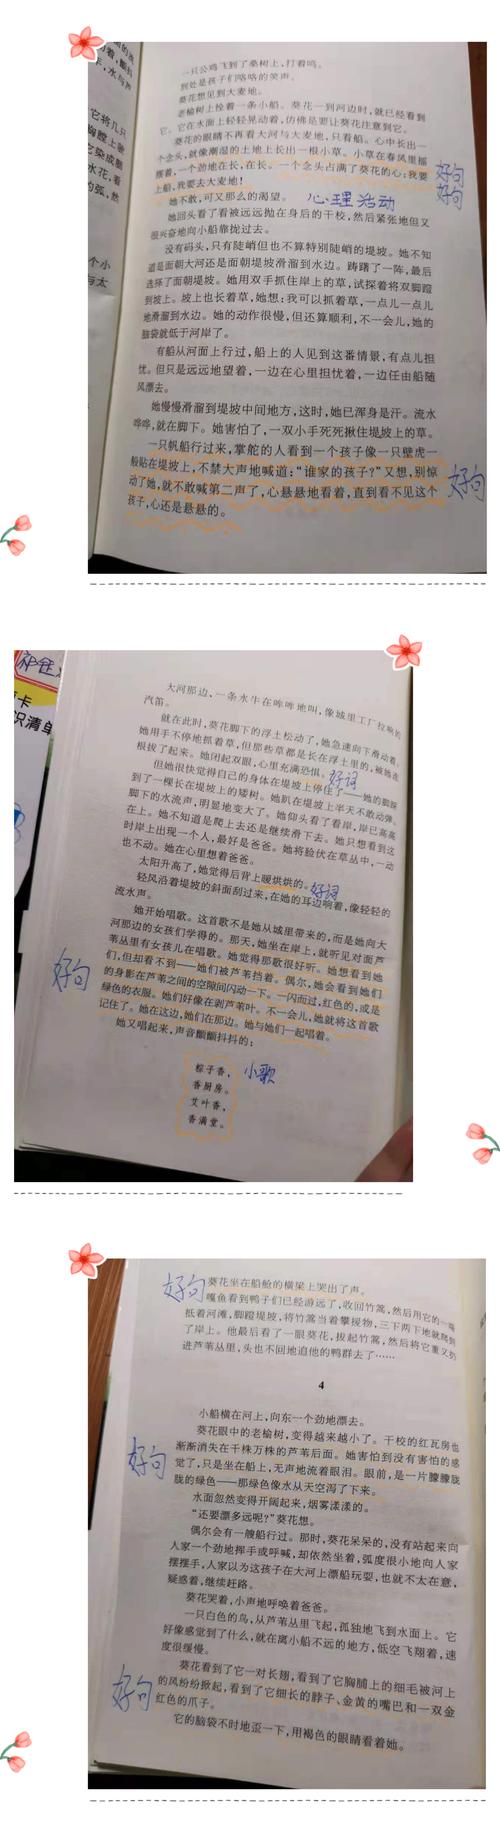 一只公鸡飞到了桑树上，打着鸣。
到处是孩子们咯咯的笑声。
葵花想见到大麦地。
老榆树上拴着一条小船。葵花一到河边时，就已经看到
它。它在水面上轻轻晃动着，仿佛是要让葵花注意到它。
葵花的眼睛不再看大河与大麦地，只看船。心中长出一
个念头，就像潮湿的土地上长出一根小草。小草在春风里摇
摆着，一个劲地在长，在长。一个念头占满了葵花的心：我要
上船，我要去大麦地！
好句
好句
她不敢，可又那么的渴望。
心理活动
她回头看了看被远远抛在身后的干校，然后紧张地但又
很兴奋地向小船靠拢过去。
没有码头，只有陡峭但也不算特别陡峭的堤坡。她不知
道是面朝大河还是面朝堤坡滑溜到水边。踌躇了一阵，最后
选择了面朝堤坡。她用双手抓住岸上的草，试探着将双脚蹬
到坡上。坡上也长着草，她想：我可以抓着草，一点儿一点儿
地滑溜到水边。她的动作很慢，但还算顺利，不一会儿，她的
脑袋就低于河岸了。
有船从河面上行过，船上的人见到这番情景，有点儿担
忧。但只是远远地望着，一边在心里担忧着，一边任由船随
风漂去。
她慢慢滑溜到堤坡中间地方，这时，她已浑身是汗。流水
哗哗，就在脚下。她害怕了，一双小手死死揪住堤坡上的草。
一只帆船行过来，掌舵的人看到一个孩子像一只壁虎一
般贴在堤坡上，不禁大声地喊道：“谁家的孩子？”又想，别惊
动了她，就不敢喊第二声了，心悬悬地看着，直到看不见这个
孩子，心还是悬悬的。
好句
大河那边，一条水牛在哞哞地叫，像城里工厂拉响的
汽笛。
就在此时，葵花脚下的浮土松动了，她急速向下滑动着。
她用手不停地抓着草，但那些草都是长在浮土里的，被她连
根拔了起来。她闭起双眼，心里充满恐惧。
好词
但她很快觉得自己的身体在堤坡上停住了——她的脚踩
到了一棵长在堤坡上的矮树。她趴在堤坡上半天不敢动弹。
脚下的水流声，明显地变大了。她仰头看了看岸，岸已高高
在上。她不知道是爬上去还是继续滑下去。她只想看到这
时岸上出现一个人，最好是爸爸。她将脸伏在草丛中，一动
也不动。她在心里想着爸爸。
太阳升高了，她觉得后背上暖烘烘的。
好词
轻风沿着堤坡的斜面刮过来，在她的耳边响着，像轻轻的
流水声。
她开始唱歌。这首歌不是她从城里带来的，而是她向大
河那边的女孩们学得的。那天，她坐在岸上，就听见对面芦
苇丛里有女孩儿在唱歌。她觉得那歌很好听。她想看到她
们，但却看不到——她们被芦苇挡着。偶尔，她会看到她们
的身影在芦苇之间的空隙间闪动一下。一闪而过，红色的，或是
绿色的衣服。她们好像在剥芦苇叶。不一会儿，她就将这首歌
记住了。她在这边，她们在那边。她与她们一起唱着。
好句
她又唱起来，声音颤颤抖抖的：
粽子香，
香厨房。
艾叶香，
香满堂。
小歌
好句
葵花坐在船舱的横梁上哭出了声。
嘎鱼看到鸭子们已经游远了，收回竹篙，然后用它的一端
抵着河滩，脚蹬堤坡，将竹篙当着攀援物，三下两下地就爬到
了岸上。他最后看了一眼葵花，拔起竹篙，然后将它重又扔
进芦苇丛里，头也不回地追他的鸭群去了……
4
小船横在河上，向东一个劲地漂去。
葵花眼中的老榆树，变得越来越小了。干校的红瓦房也
渐渐消失在千株万株的芦苇后面。她害怕到没有害怕的感
觉了，只是坐在船上，无声地流着眼泪。眼前，是一片朦朦胧
胧的绿色——那绿色像水从天空泻了下来。
好句
水面忽然变得开阔起来，烟雾漾漾的。
“还要漂多远呢？”葵花想。
偶尔会有一艘船行过。那时，葵花呆呆的，没有站起来向
人家一个劲地挥手或呼喊，却依然坐着，弧度很小地向人家
摆摆手，人家以为这孩子在大河上漂船玩耍，也就不太在意，
疑惑着，继续赶路。
葵花哭着，小声地呼唤着爸爸。
一只白色的鸟，从芦苇丛里飞起，孤独地飞到水面上。它
好像感觉到了什么，就在离小船不远的地方，低空飞翔着，速
度很缓慢。
葵花看到了它一对长翅，看到了它胸脯上的细毛被河上
的风纷纷掀起，看到了它细长的脖子、金黄的嘴巴和一双金
红色的爪子。
好句
它的脑袋不时地歪一下，用褐色的眼睛看着她。